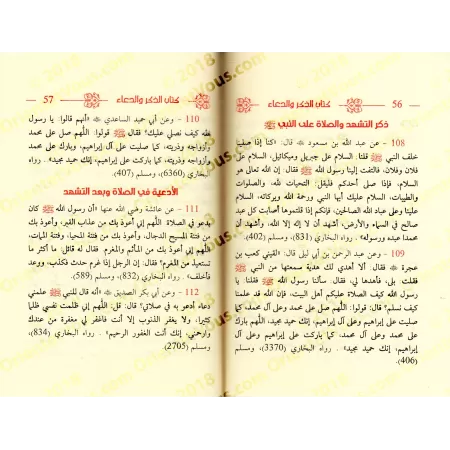 56 كتاب الذكر والدعاء
ذكر التشهد والصلاة على النبي ﷺ
108 - عن عبد الله بن مسعود قال: «كنا إذا صلينا
خلف النبي ﷺ قلنا: السلام على جبريل وميكائيل، السلام على
فلان وفلان، فالتفت إلينا رسول الله ﷺ فقال: إن الله تعالى هو
السلام، فإذا صلى أحدكم فليقل: التحيات لله، والصلوات
والطيبات، السلام عليك أيها النبي ورحمة الله وبركاته، السلام
علينا وعلى عباد الله الصالحين، فإنكم إذا قلتموها أصابت كل عبد
صالح في السماء والأرض، أشهد أن لا إله إلا الله، وأشهد أن
محمدا عبده ورسوله» . رواه البخاري (831)، ومسلم (402).
109 - وعن عبد الرحمن بن أبي ليلى قال: «لقيني كعب بن
عجرة فقال: ألا أهدي لك هدية سمعتها من النبي ﷺ
فقلت: بلى، فأهدها لي، فقال: سألنا رسول الله ﷺ فقلنا: يا
رسول الله كيف الصلاة عليكم أهل البيت، فإن الله قد علمنا
كيف نسلم؟ قال: قولوا: اللهم صل على محمد وعلى آل محمد، كما
صليت على إبراهيم وعلى آل إبراهيم، إنك حميد مجيد، اللهم بارك
على محمد وعلى آل محمد، كما باركت على إبراهيم وعلى آل
إبراهيم، إنك حميد مجيد» . رواه البخاري (3370)، ومسلم
(406)
كتاب الذكر والدعاء 57
110 - وعن أبي حميد الساعدي «أنهم قالوا: يا رسول
الله كيف نصلي عليك؟ فقال ﷺ قولوا: اللهم صل على محمد
وأزواجه وذريته، كما صليت على آل إبراهيم، وبارك على محمد
وأزواجه وذريته، كما باركت على آل إبراهيم، إنك حميد مجيد» .
رواه البخاري (6360)، ومسلم (407)
الأدعية في الصلاة وبعد التشهد
111 - عن عائشة رضي الله عنها «أن رسول الله ﷺ كان
يدعو في الصلاة اللهم إني أعوذ بك من عذاب القبر، وأعوذ بك
من فتنة المسيح الدجال، وأعوذ بك من فتنة المحيا، وفتنة الممات،
اللهم إني أعوذ بك من المأثم والمغرم فقال له قائل: ما أكثر ما
تستعيذ من المغرم؟ فقال: إن الرجل إذا غرم حدث فكذب، ووعد
فأخلف» . رواه البخاري (832)، ومسلم (589).
112 - وعن أبي بكر الصديق «أنه قال للنبي ﷺ علمني
دعاء أدعو به في صلاتي؟ قال: قل: اللهم إني ظلمت نفسي ظلما
كثيرا، ولا يغفر الذنوب إلا أنت فاغفر لي مغفرة من عندك
وارحمني، إنك أنت الغفور الرحيم» . رواه البخاري (834)
ومسلم (2705)